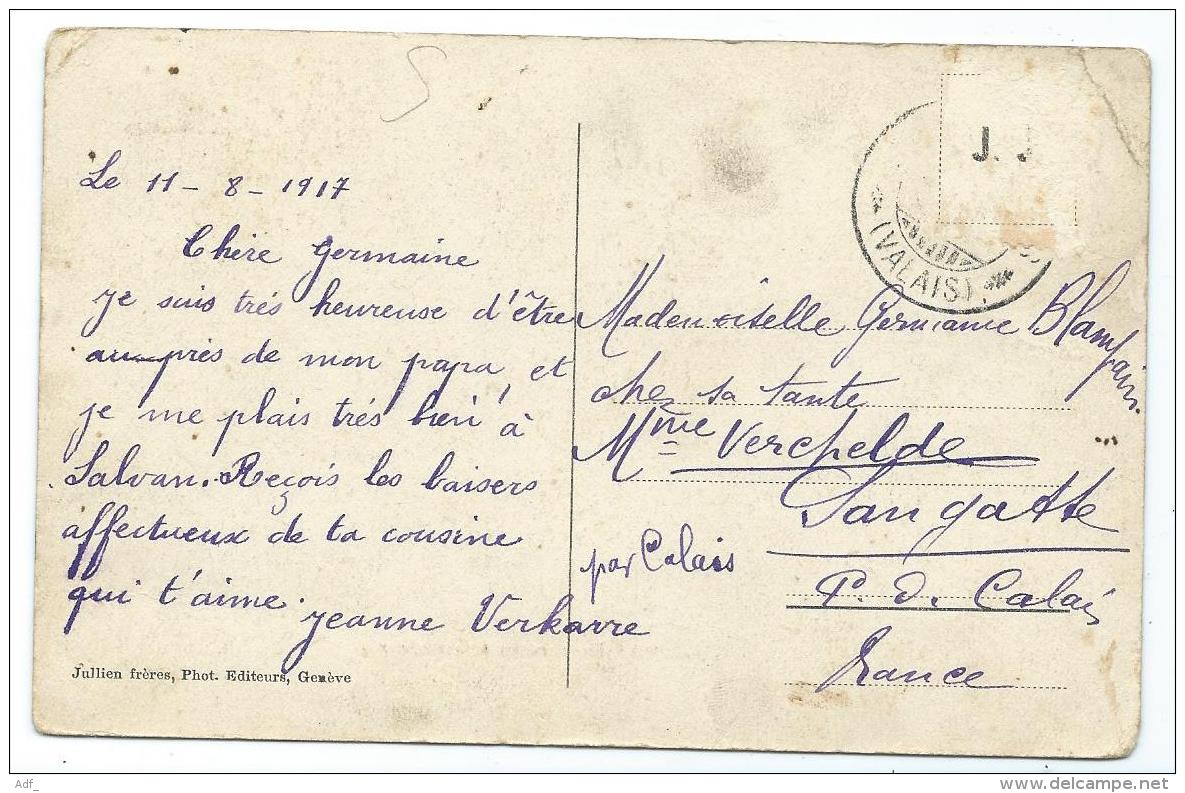 Le 11 - 8 - 1917
Chère Germaine
je suis très heureuse d'être
au près de mon papa, et
je me plais très bien à
Salvan. Reçois les baisers
affectueux de ta cousine
qui t'aime.
Jeanne Verkarre
Jullien frères, Phot. Editeurs, Genève
J. J
(VALAIS)
Mademoiselle Germaine Blampain
chez sa tante
Mme Verchelde
Sangatte
par Calais
P. d. Calais
France
Adf_
www.delcampe.net